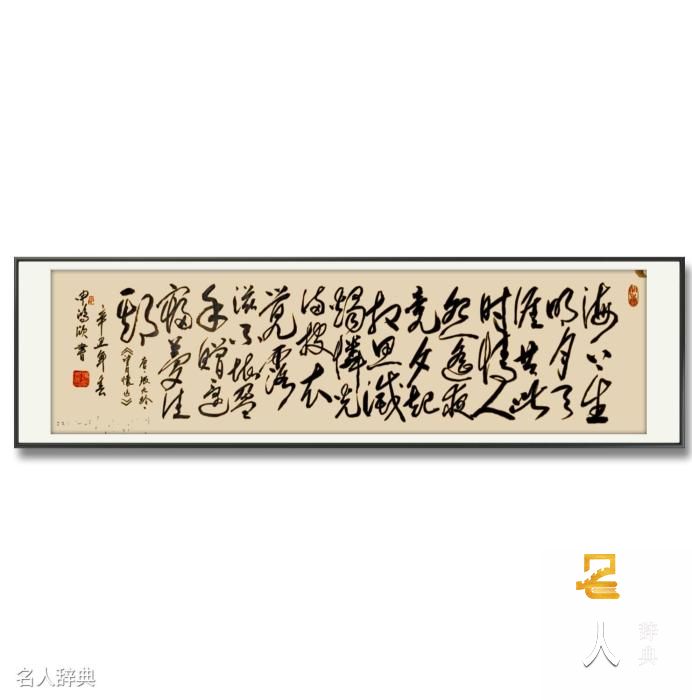 海上生
明月天
涯共此
时情人
怨遥夜
竟夕起
相思灭
烛怜光
满披衣
觉露
滋不堪盈
手赠还
寝梦佳
期
唐·张九龄·
《望月怀远》
辛丑年春
书
名人辞典
名
人
辞典